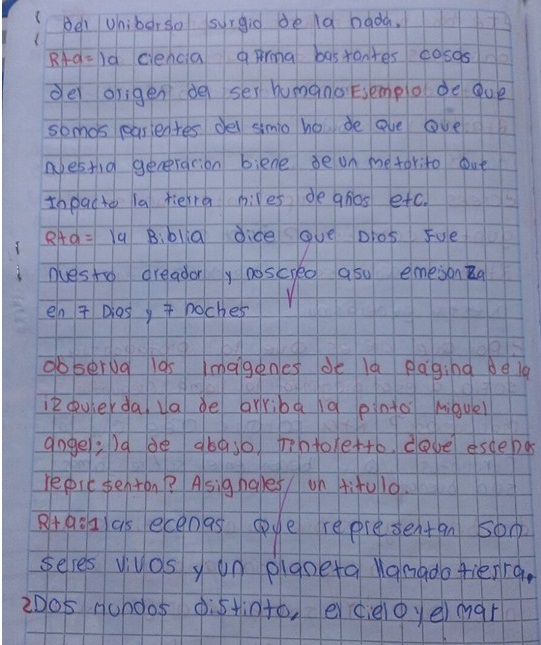 del uniberso surgio de la nada.
Rta= la ciencia afirma bastantes cosas
del origen del ser humano Esemplo de que
somos parientes del simio ho de que que
nuestra generacion biene de un metorito que
inpacto la tierra miles de años etc.
Rta= la Biblia dice que Dios Fue
nuestro creador y noscreo asu emejanza
en 7 Dias y 7 noches
observa las imagenes de la pagina de la
izquierda. La de arriba la pinto Miguel
angel; la de abajo, Tintoretto. ¿Qué escenas
representan? Asignales un titulo.
Rta:1 las ecenas que representan son
seres vivos y un planeta llamado tierra.
2Dos mundos distinto, el cielo y el mar